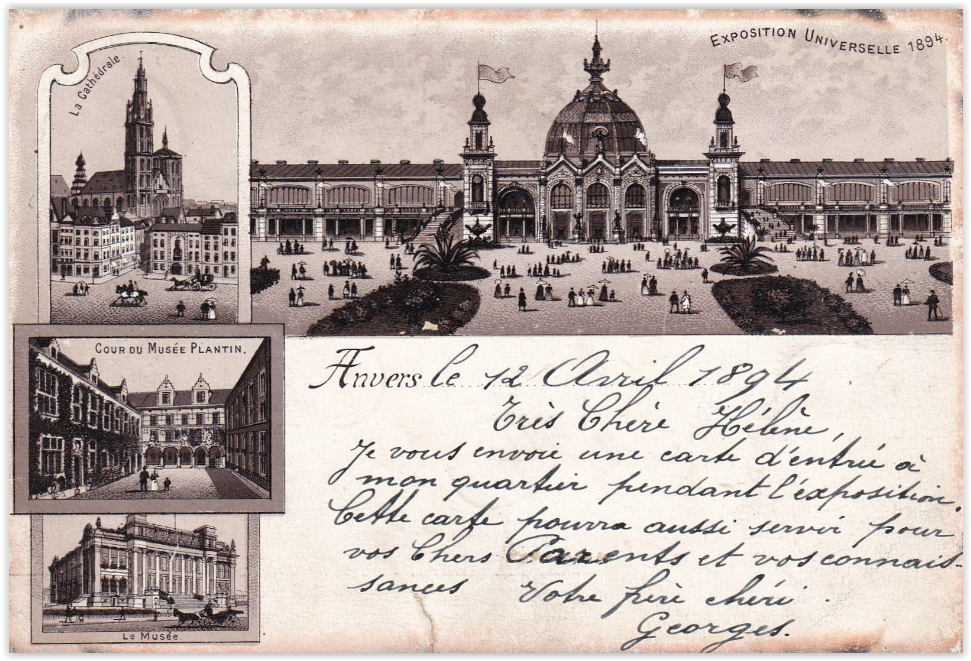 EXPOSITION UNIVERSELLE 1894.
La Cathédrale
COUR DU MUSÉE PLANTIN.
Le Musée
Anvers le 12 Avril 1894.
Très Chère Hélène,
Je vous envoie une carte d'entrée à
mon quartier pendant l'exposition.
Cette carte pourra aussi servir pour
vos Chers Parents et vos connais-
sances Votre frère chéri.
Georges.